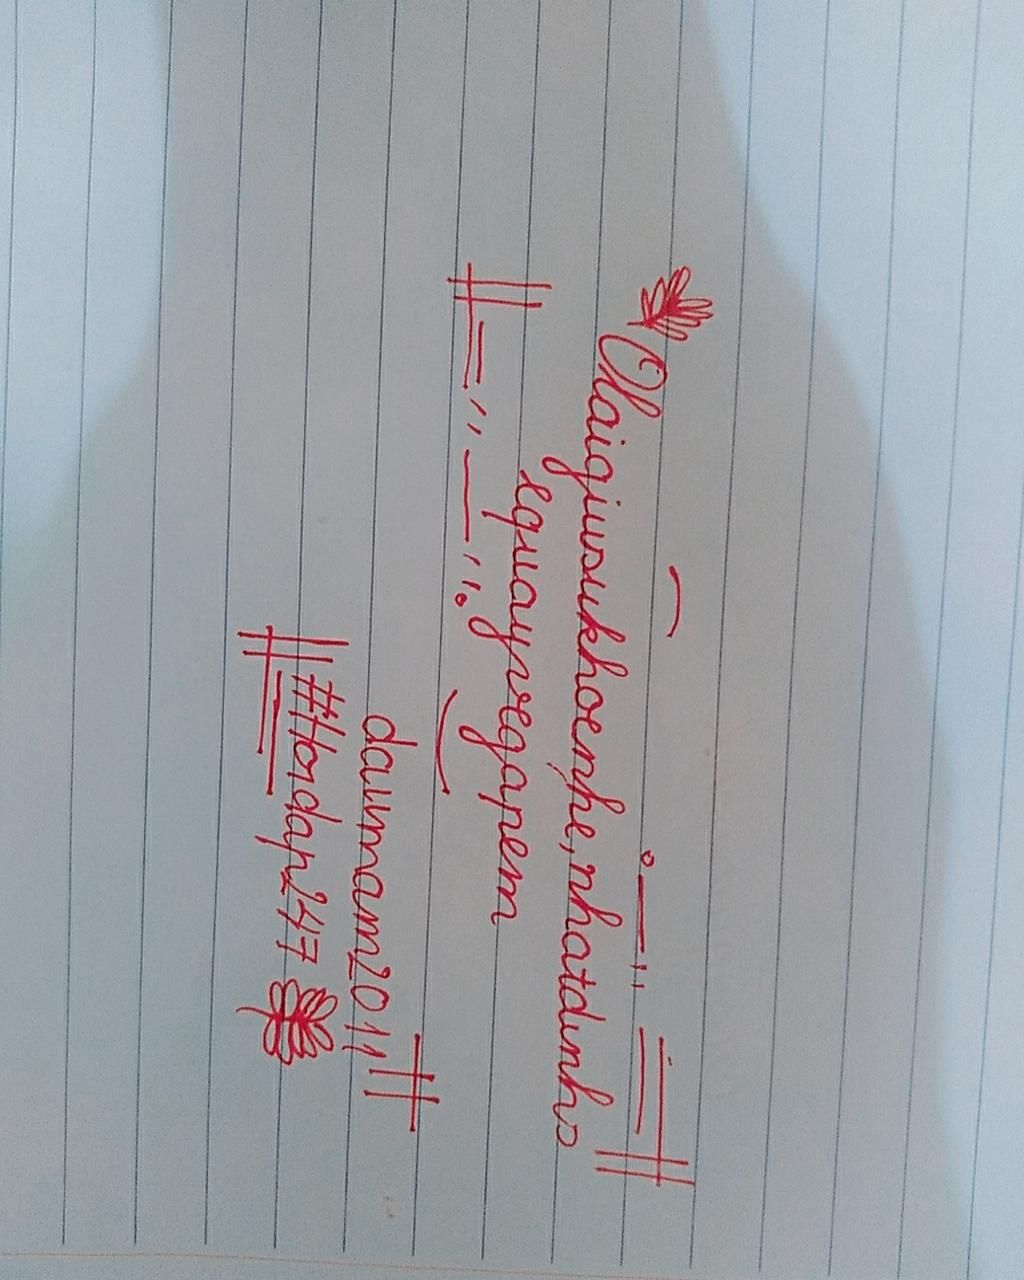 Olaigiusukhoempe,nhatdinhs
equayregapem
daumam2011
#Hordap247